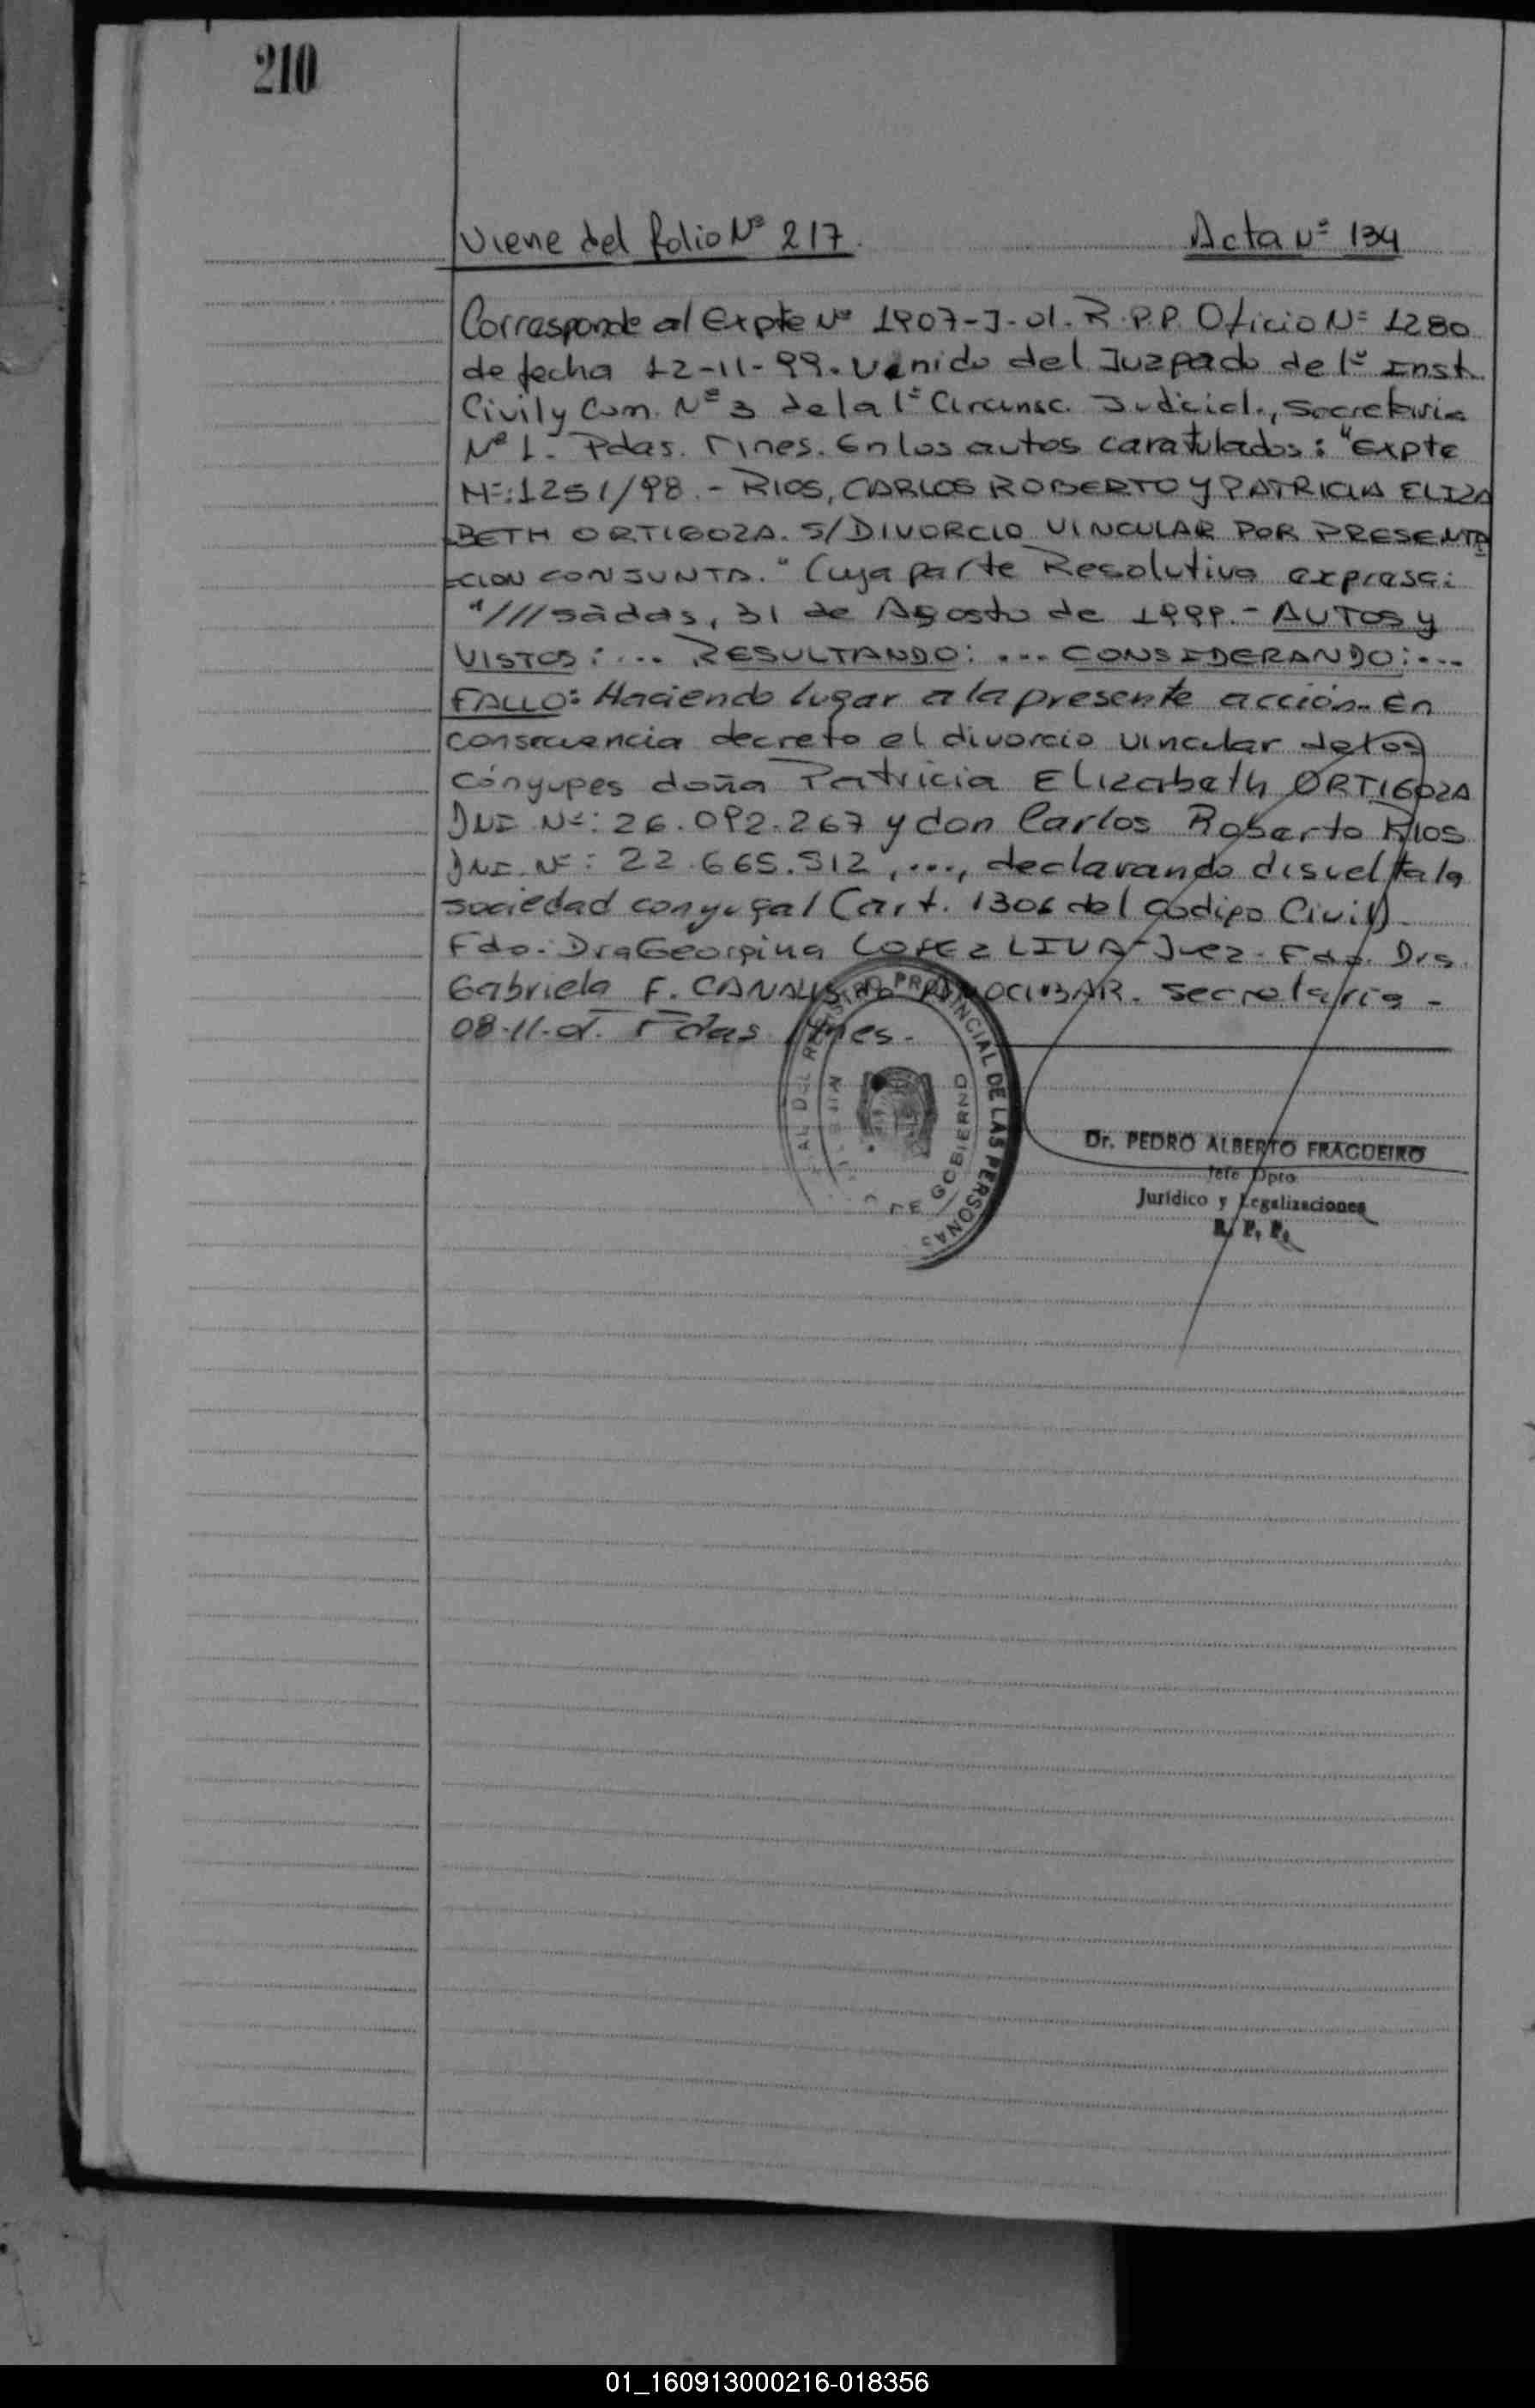 210
Viene del folio Nº 217. Acta Nº 134
Corresponde al Expte Nº 1907-J-01. R.P.P. Oficio Nº 1280
de fecha 12-11-99. Venido del Juzgado de 1º Inst.
Civil y Com. Nº 3 de la 1º Circunsc. Judicial., Secretaria
Nº 1- Pdas. Mnes. En los autos caratulados: "Expte
Nº: 1251/98.- RIOS, CARLOS ROBERTO y PATRICIA ELIZA
BETH ORTIGOZA. S/DIVORCIO VINCULAR POR PRESENTA
CION CONJUNTA." Cuya parte Resolutiva expresa:
"///sadas, 31 de Agosto de 1999.- AUTOS y
VISTOS:... RESULTANDO:... CONSIDERANDO:...
FALLO: Haciendo lugar a la presente acción. En
consecuencia decreto el divorcio vincular de los
cónyuges doña Patricia Elizabeth ORTIGOZA
DNI Nº: 26.092.267 y don Carlos Roberto RIOS
DNI. Nº: 22.665.512, ..., declarando disuelta la
sociedad conyugal (art. 1306 del Codigo Civil)
Fdo. Dra Georgina LOPEZ LIVA- Juez. Fdo. Dra.
Gabriela F. CANALIS secretaria -
08-11-01. Pdas Mnes.-
REGISTRO PROVINCIAL DE LAS PERSONAS
DE GOBIERNO
Dr. PEDRO ALBERTO FRAGUEIRO
Jefe Dpto.
Jurídico y Legalizaciones
R. P. P.
01_160913000216-018356